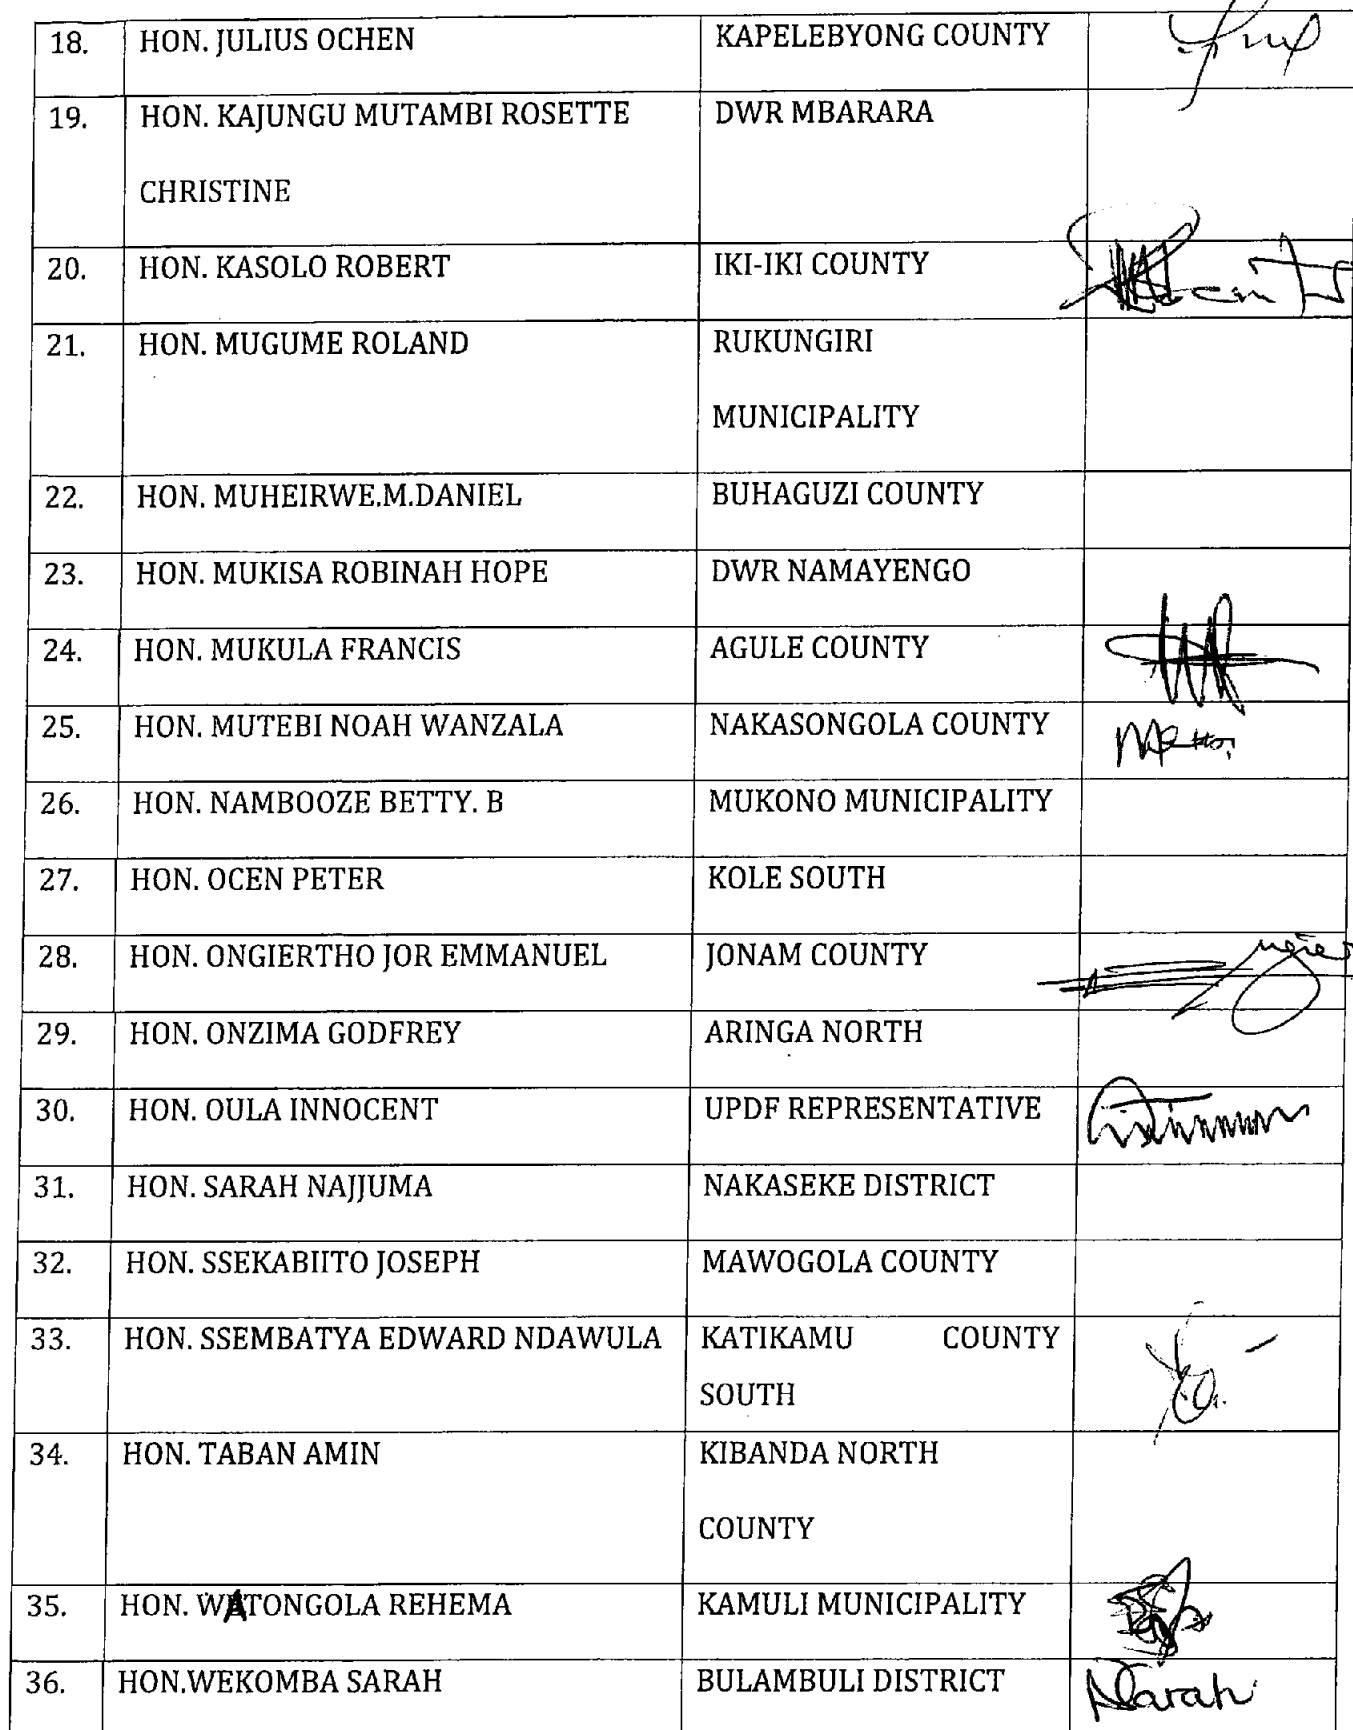 18. HON. JULIUS OCHEN KAPELEBYONG COUNTY
19. HON. KAJUNGU MUTAMBI ROSETTE DWR MBARARA
CHRISTINE
20. HON. KASOLO ROBERT IKI-IKI COUNTY
21. HON. MUGUME ROLAND RUKUNGIRI
MUNICIPALITY
22. HON. MUHEIRWE.M.DANIEL BUHAGUZI COUNTY
23. HON. MUKISA ROBINAH HOPE DWR NAMAYENGO
24. HON. MUKULA FRANCIS AGULE COUNTY
25. HON. MUTEBI NOAH WANZALA NAKASONGOLA COUNTY
26. HON. NAMBOOZE BETTY. B MUKONO MUNICIPALITY
27. HON. OCEN PETER KOLE SOUTH
28. HON. ONGIERTHO JOR EMMANUEL JONAM COUNTY
29. HON. ONZIMA GODFREY ARINGA NORTH
30. HON. OULA INNOCENT UPDF REPRESENTATIVE
31. HON. SARAH NAJJUMA NAKASEKE DISTRICT
32. HON. SSEKABIITO JOSEPH MAWOGOLA COUNTY
33. HON. SSEMBATYA EDWARD NDAWULA KATIKAMU COUNTY
SOUTH
34. HON. TABAN AMIN KIBANDA NORTH
COUNTY
35. HON. WATONGOLA REHEMA KAMULI MUNICIPALITY
36. HON.WEKOMBA SARAH BULAMBULI DISTRICT Sarah